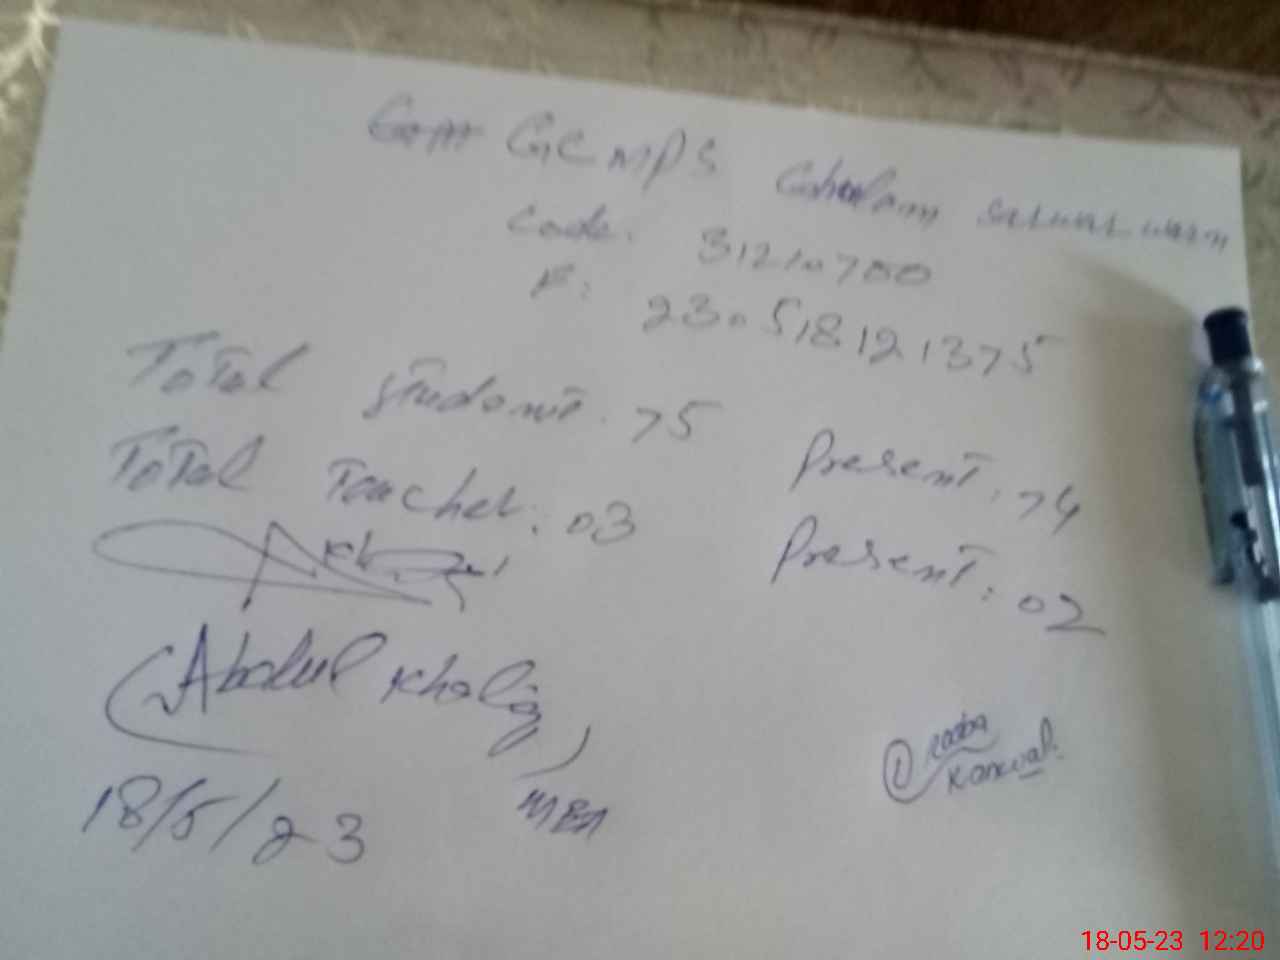 GCMPS Ghulam
Code: 31210700
F: 230518121375
Total student. 75 Present. 74
Total Teacher: 03 Present: 02
(Abdul Khaliq)
MEA
18/5/23
① Kanwal.
18-05-23 12:20